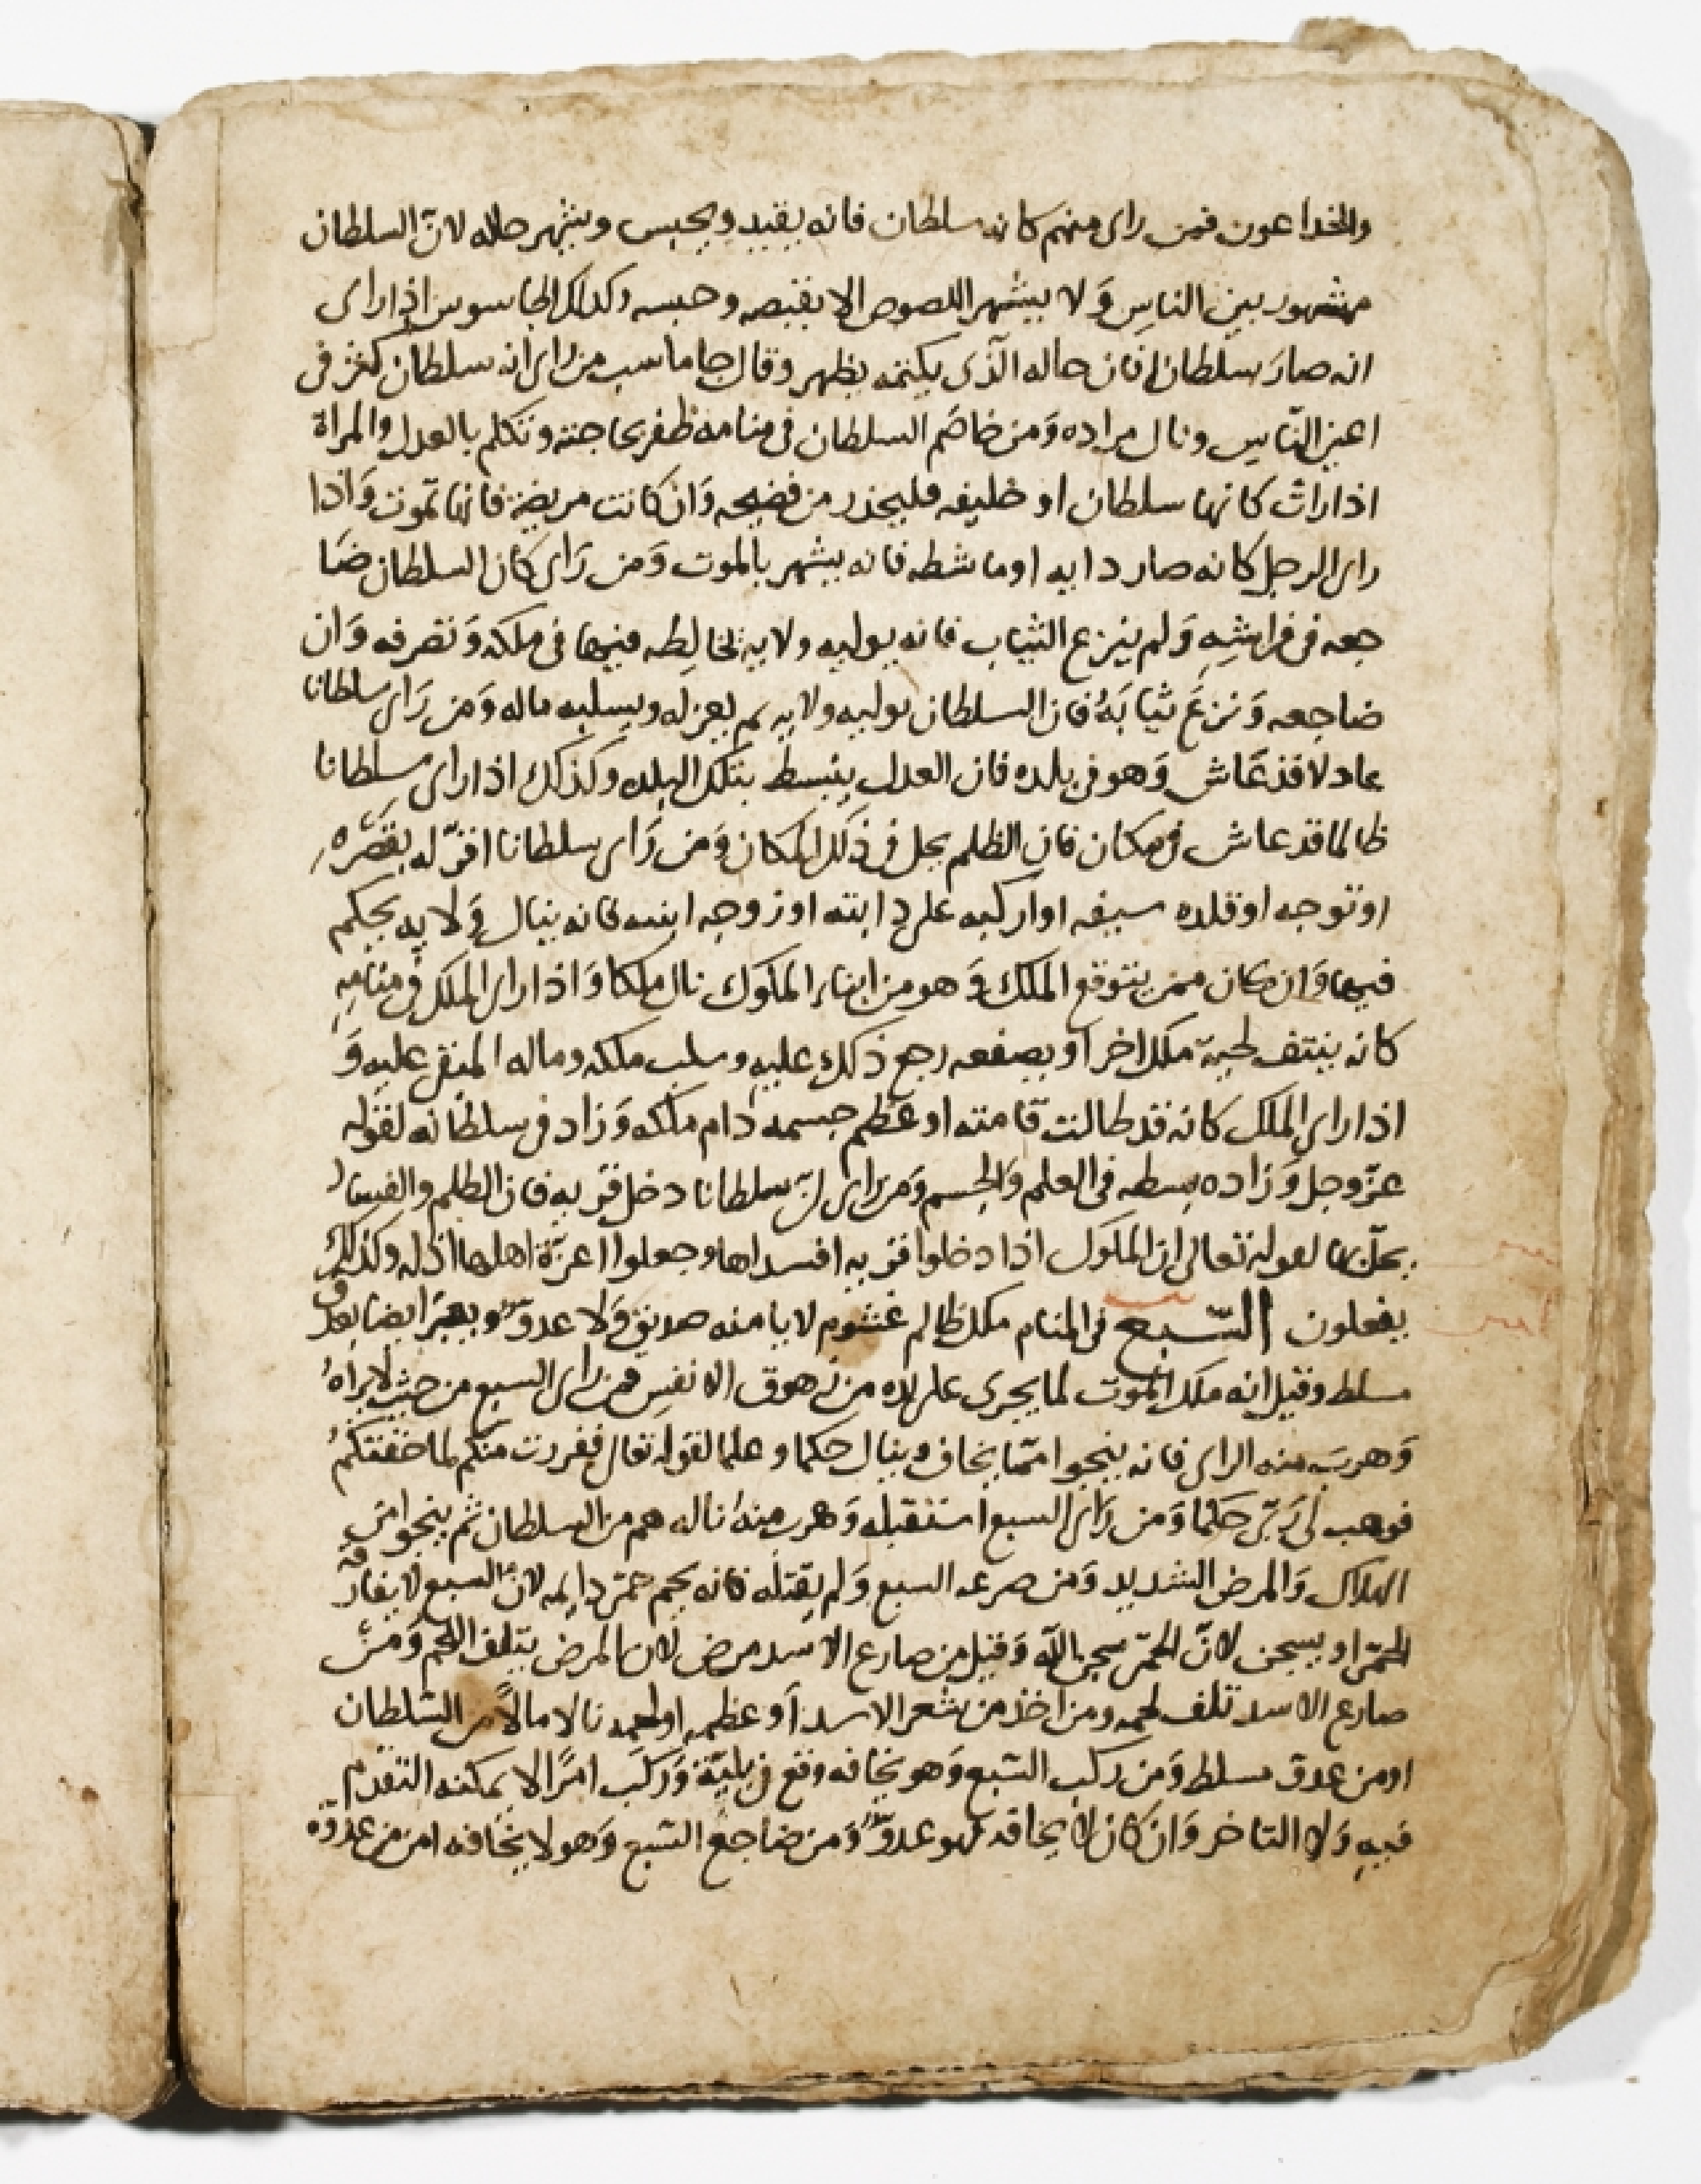 والخداعون فمن راى منهم كانه سلطان فانه يقيد ويحبس ويشهر حاله لانّ السلطان
مشهور بين الناس وَلا يشهر اللصوص الا بقبصه وحبسه وكذلك الجاسوس اذا راى
انه صارَ سلطان فان حاله الّذى يكتمه يظهر وقال جاماسب من راى انه سلطان كبر فى
اعين النّاس ونال مراده وَمن خاصَم السلطان فى منامه ظفر بحاجته وتكلم بالعدل والمراة
اذا رات كانها سلطان او خليفه فليحذر من فضيحه وَان كانت مريضة فانها تموت وَاذا
راى الرجل كانه صار دابه او ماشطه فانه يشهر بالموت وَمن رَاى كان السلطان ضَا
جعه فى فراشِهِ وَلم ينزع الثياب فانه يوليه ولايه يخالِطه فيها فى ملكه وَتصرفه وَان
ضاجعه وَنزعَ ثيابَهُ فان السلطان يوليه ولايه ثم يعزله ويسلبه ماله وَمن رَاى سلطانا
عادلا قد عَاش وَهو فى بلده فان العدل ينبسط بتلك البلده وكذلك اذا راى سلطانا
ظالما قد عاش فى مكان فان الظلم يحل فى ذلك المكان وَمن رَاى سلطانا اقرّله بقصَره
او توجه او قلده سيفه او اركبه على دابته او زوجه ابنته فانه ينال وَلايه يحكم
فيها وَان كان ممن يتوقع الملك وَهو من ابناء الملوك نال ملكا وَاذا راى الملك فى منامِهِ
كانه ينتف لحية ملك اخر اَو يصفعه رجع ذلك عليهِ وسلب ملكه وماله المنقى عليهِ وَ
اذا راى الملك كانه قد طالت قامته او عَظم جسمه دام ملكه وَزاد فى سلطانه لقوله
عزّ وجل وَزاده بسطه فى العلم وَالجسم وَمن راى انّ سلطانا دخل قريه فان الظلم والفساد
يحلّ بها لقوله تعالى ان الملوك اذا دخلوا قريه افسداها وجعلوا اعزّة اهلها اذله وكذلك
يفعلون السّبع فى المنام ملك ظالم غشوم لا يامنه صديق وَلا عدوّ ويعبّر ايضا بعدو
مسلط وقيل انه ملك الموت لما يجرى على يده من زهوق الانفس فمن رَاى السبع من حيث لا يراهُ
وَهربَ منه الراى فانه ينجوا ممّا يخاف وينال حكما وعلما لقوله تعالى ففررت منكم لما خفتكمُ
فوهب لى رَبّى حكما وَمن رَاى السبع استقبله وَهرب منه ناله هم من السلطان ثم ينجوا من
الهلاك وَالمرض الشديد وَمن صرعه السبع وَلم يقتله فانه يحم حمى دايمه لانّ السبع لا يفارقه
الحمّى او يسجن لانّ الحمّى سجن الله وَقيل من صارع الاسد مرض لان المرض يتلف اللحم وَمن
صارع الاسد تلف لحمه ومن اخذ من شعر الاسد اَو عظمه او لحمه نالا مالاً من السّلطان
او من عدوّ مسلط وَمن ركب السّبع وَهو يخافه وقع فى بليّة وَرَكبَ امرًا لا يمكنه التقدم
فيهِ وَلا التاخر وَان كان لا يخافه فهو عدوّ وَمن ضاجع السّبع وَهو لا يخافه امن من عدوّه